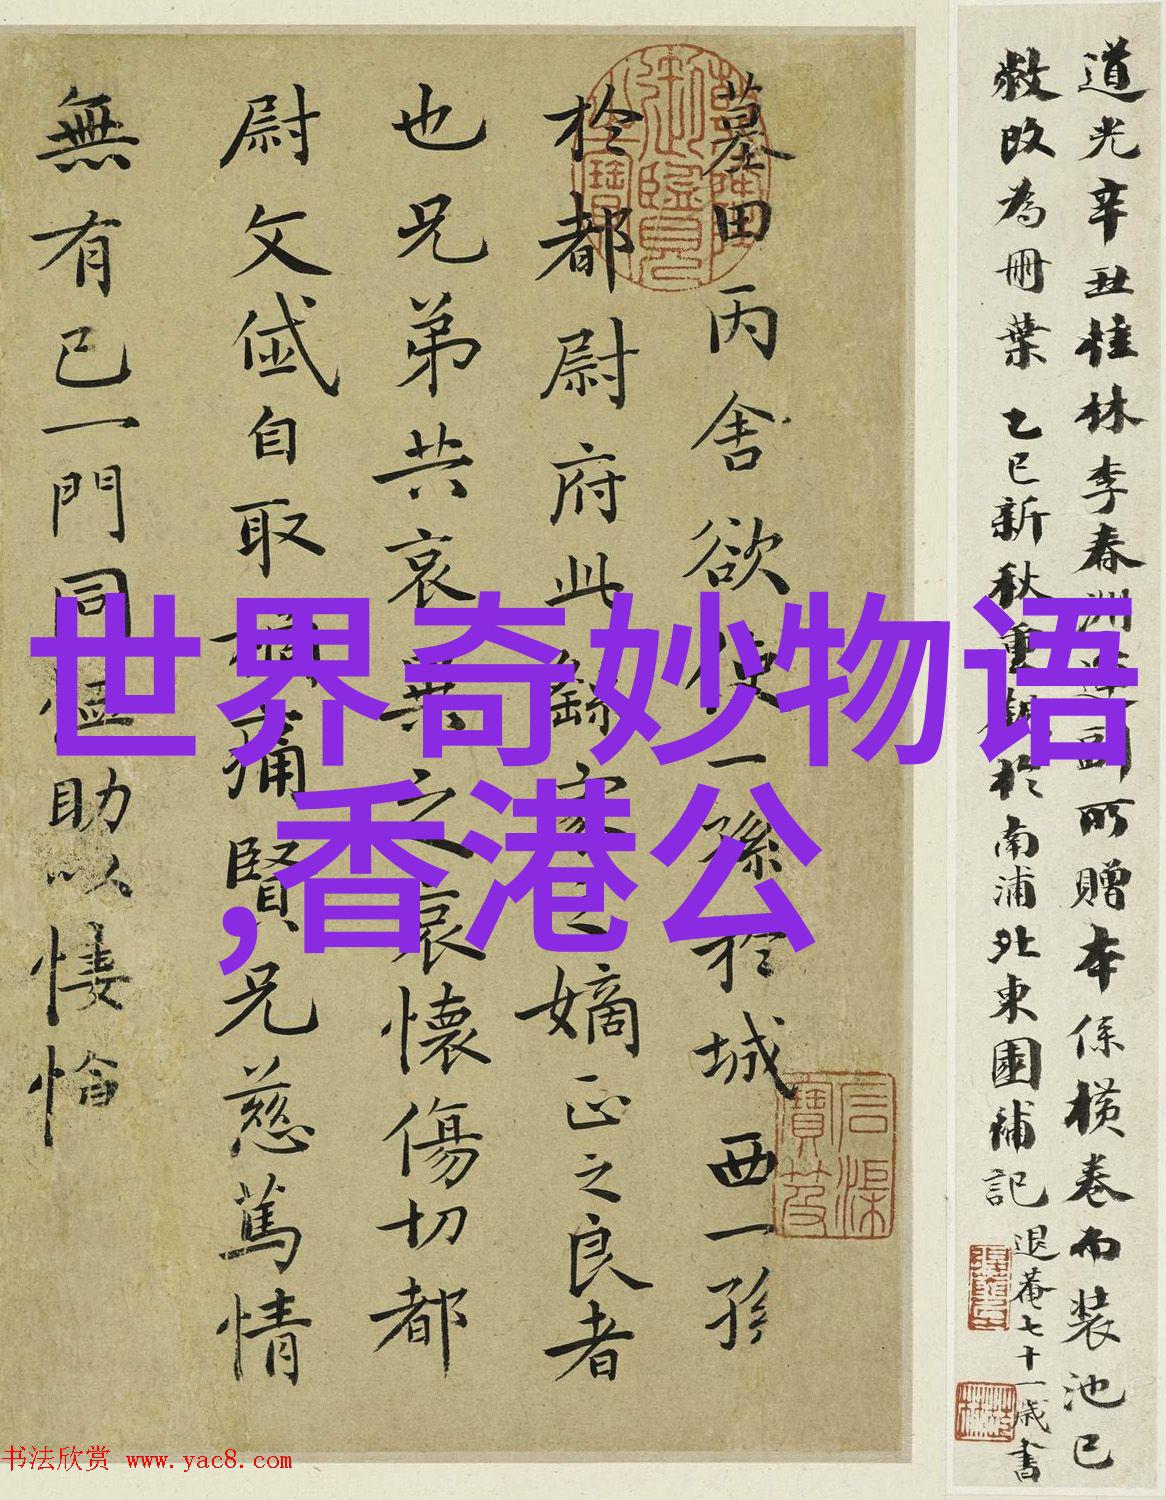 世界奇妙物语
,香港公
道光辛丑桂林李春洲所贈本係橫卷而裝池已
敝改為冊葉乙巳新秋重於南浦北東園補記退菴七十一歲書
墓田丙舍欲使一孫於城西一孫
於都尉府此繇家之嫡正之良者
也兄弟共哀異之哀懷傷切都
尉文岱自取禍痛賢兄慈篤情
無有已一門同恤助以悽愴
石渠寶笈
书法欣赏 www.yac8.com